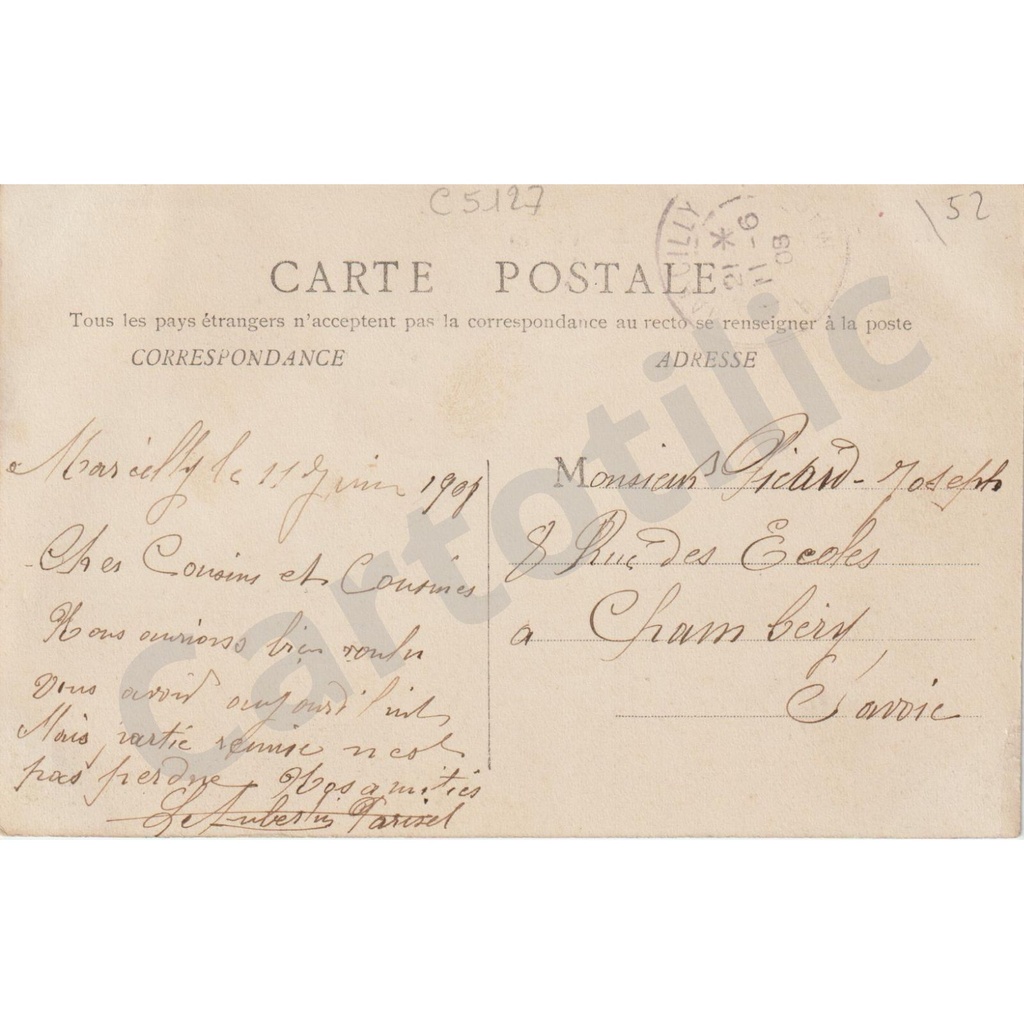 C 5127
52
CILLY
21 *
11 - 6
08
CARTE POSTALE
Tous les pays étrangers n'acceptent pas la correspondance au recto se renseigner à la poste
CORRESPONDANCE
ADRESSE
Marcilly le 11 Juin 1908
Cher Cousins et Cousines
Nous aurions bien voulu
vous avoir aujourd'hui
Mais partie remise n'est
pas perdue Nos amitiés
Aubertin Parisel
Monsieur Picard - Joseph
8 Rue des Ecoles
a Chambéry
Savoie
Cartotilic